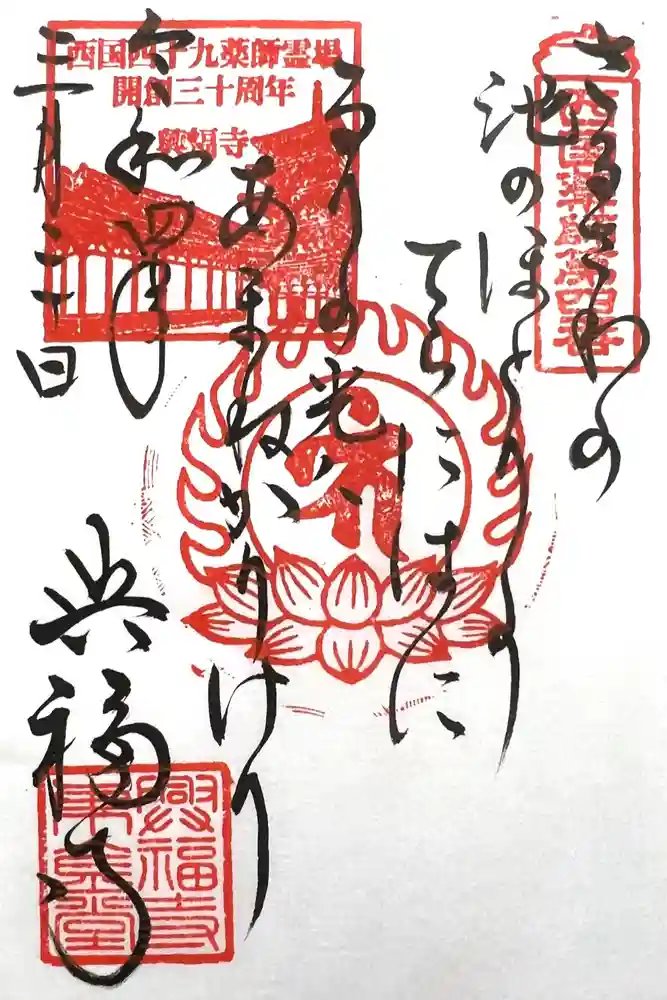 西国薬師第四番
さるさわの
池のほとりの
てらにはに
るりの光は
あまねかりけり
西国四十九薬師霊場
開創三十周年
興福寺
令和四年
三月三日
興福寺
興福寺
東金堂